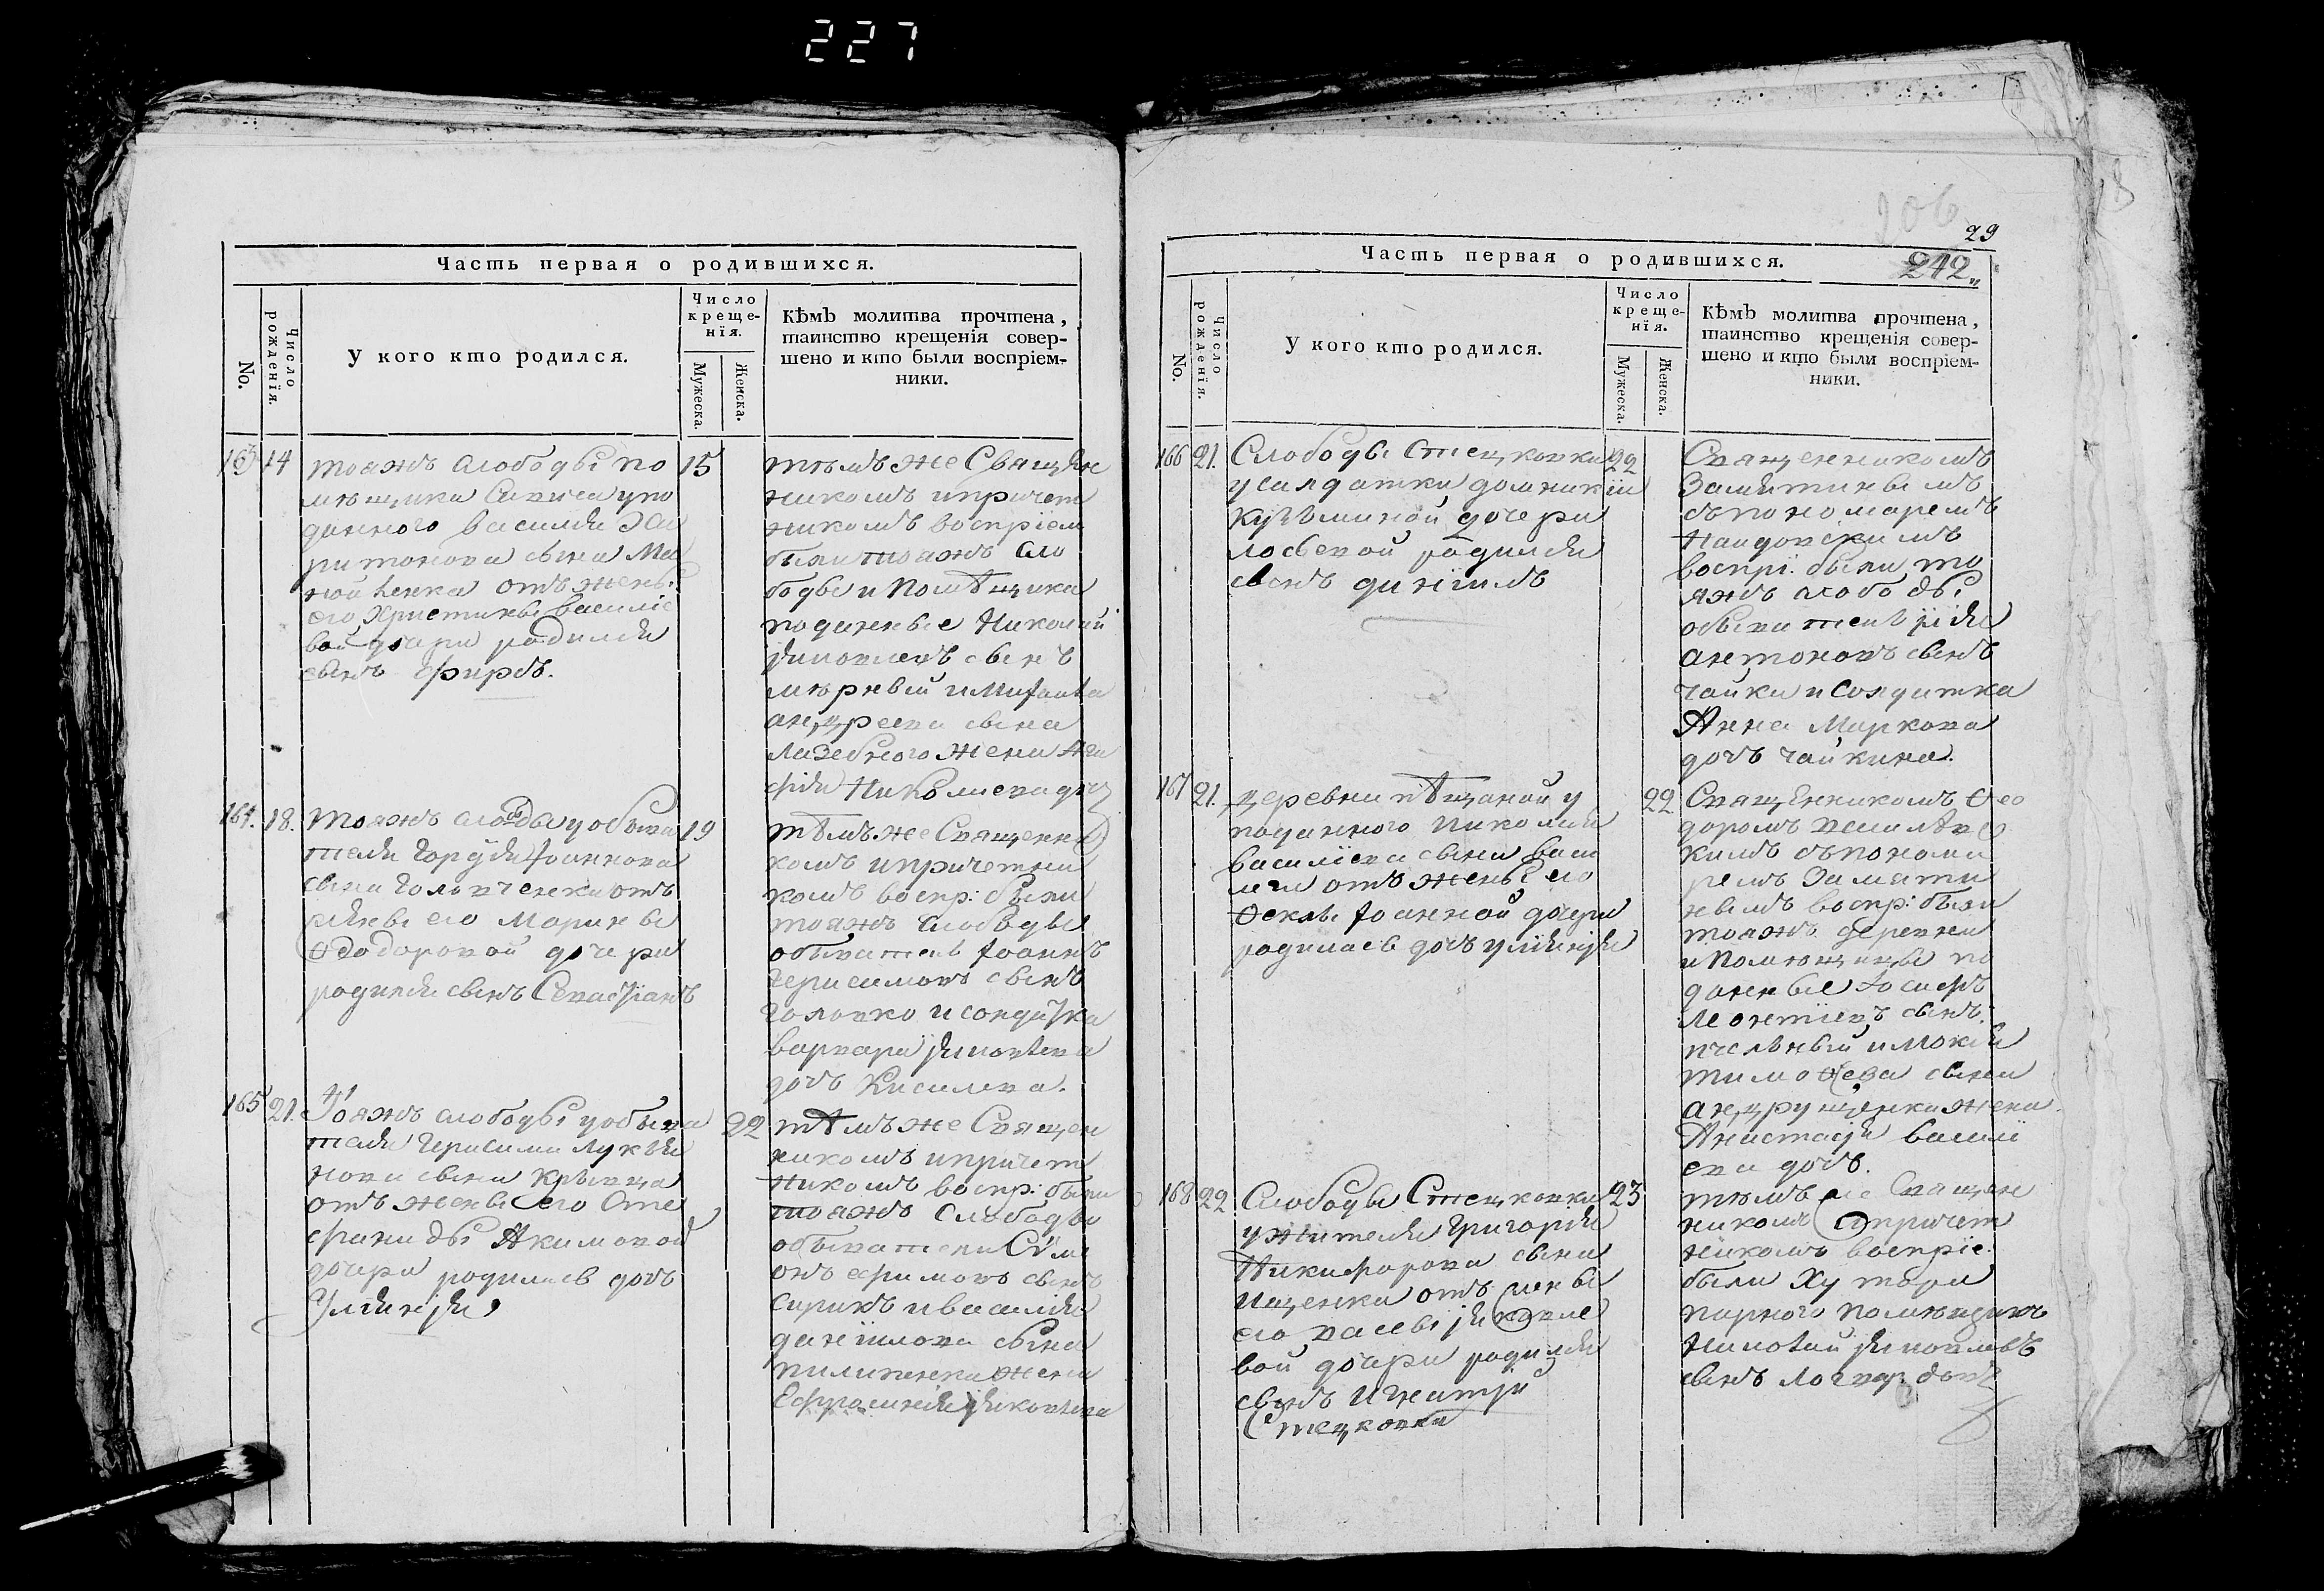 227
Часть первая о родившихся.
No.
Число рожденїя.
У кого кто родился.
Число
креще-
нїя.
Мужеска.
Женска.
Кѣмъ молитва прочтена,
таинство крещенїя совер-
шено и кто были воспрїем-
ники.
163 14
тояжъ слободы по
мѣщика
данного василия Ха
ритонова сына Ма
отъ жены
его Христины василїе
вой дочери родился
сынъ фирсъ.
15
темъ же Священ
никомъ ипричет
никомъ воспрїем
были тояжъ сло
боды и помѣщика
поданные Николай
сынъ
андреева сына
лазебного жена Ага
фїя
164. 18.
тояжъ слободы уобыва
теля
сына Головченка отъ
жены его Марины
Ѳеодоровой дочери
родился сынъ Севастїанъ
19
тѣмъ же Священни
комъ ипричетни
комъ воспр: были
тояжъ слободы
обыватель Іоаннъ
герасимовъ сынъ
Головко и солдатка
варвара яковлева
дочь Киселева.
165 21.
Тояжъ слободы уобыва
теля Герасима лукїя
нова сына Кравца
отъ жены его Сте
фаниды Акимовой
дочери родилась дочь
Улїянїя
22
тѣмъ же Священ
никомъ ипричет
никомъ воспр: были
тояжъ Слободы
обыватели Сѵме
онъ ефимовъ сынъ
Сирикъ и василия
данїилова сына
пилипенка жена
Ефросинїя яковлева
206
29
242
Часть первая о родившихся.
No.
Число рожденїя.
У кого кто родился.
Число
креще-
нїя.
Мужеска.
Женска.
Кѣмъ молитва прочтена,
таинство крещенїя совер-
шено и кто были воспрїем-
ники.
166 21.
Слободы Стецковки
усалдатки домникїи
Кузьминой дочери
лосевой родился
сынъ данїилъ
22
Священникомъ
Замятинымъ
съпономаремъ
воспрї: были то
яжъ слободы
обыватель
антоновъ сынъ
чайка и Солдатка
Анна Маркова
дочь чайкина.
167 21.
деревни пѣщаной у
поданного Николая
василїева сына
отъ жены его
Ѳеклы Іоанной дочери
родилась дочь улїянїя
22
Священникомъ Ѳео
доромъ василев
кимъ съпонома
ремъ Замяти
нымъ воспр: были
тояжъ деревни
и помѣщицы по
данные Іосифъ
леонтїевъ сынъ
пчелный имокїя
тимоѳеева сына
андрущенка жена
Анастасїя василї
ева дочь.
168 22
Слободы Стецковки
ужителя Григорїя
Никифорова сына
Ищенка отъ жены
его
вой дочери родился
сынъ Игнатїй
Стецковки
23
темъ же Священ
никомъ ипричет
никомъ воспрїе:
были Хутора
парного помѣщикъ
Николай яковлевъ
сынъ